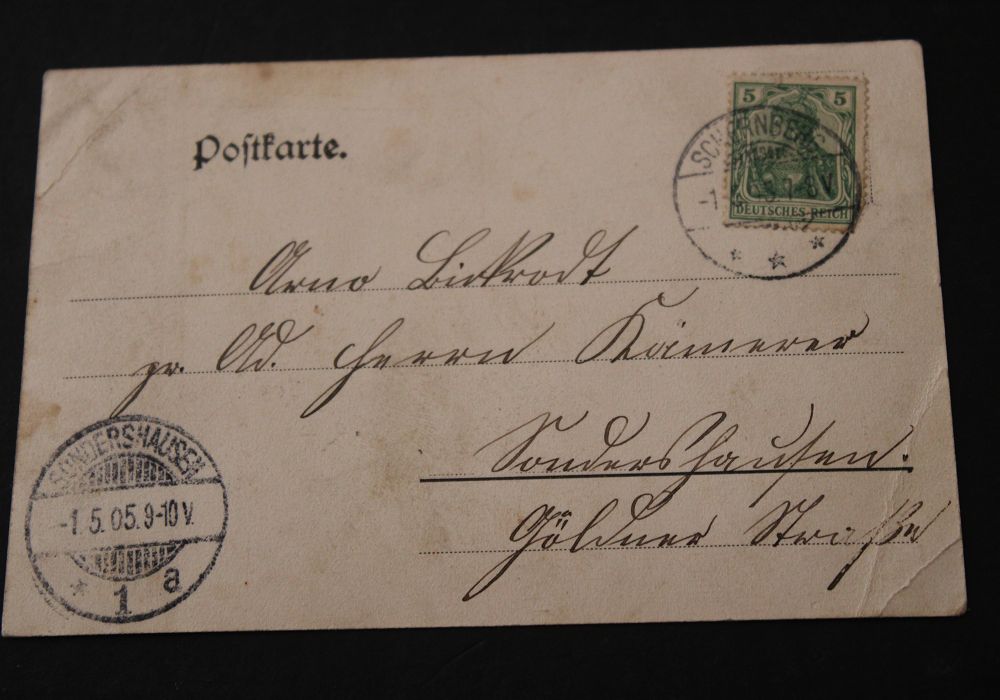 Postkarte.
5 5
DEUTSCHES REICH
Arno Bickrodt
pr. Ad. Herrn Kämerer
Sondershausen.
Göldner Straße
SONDERSHAUSEN
-1.5.05.9-10V.
* 1 a